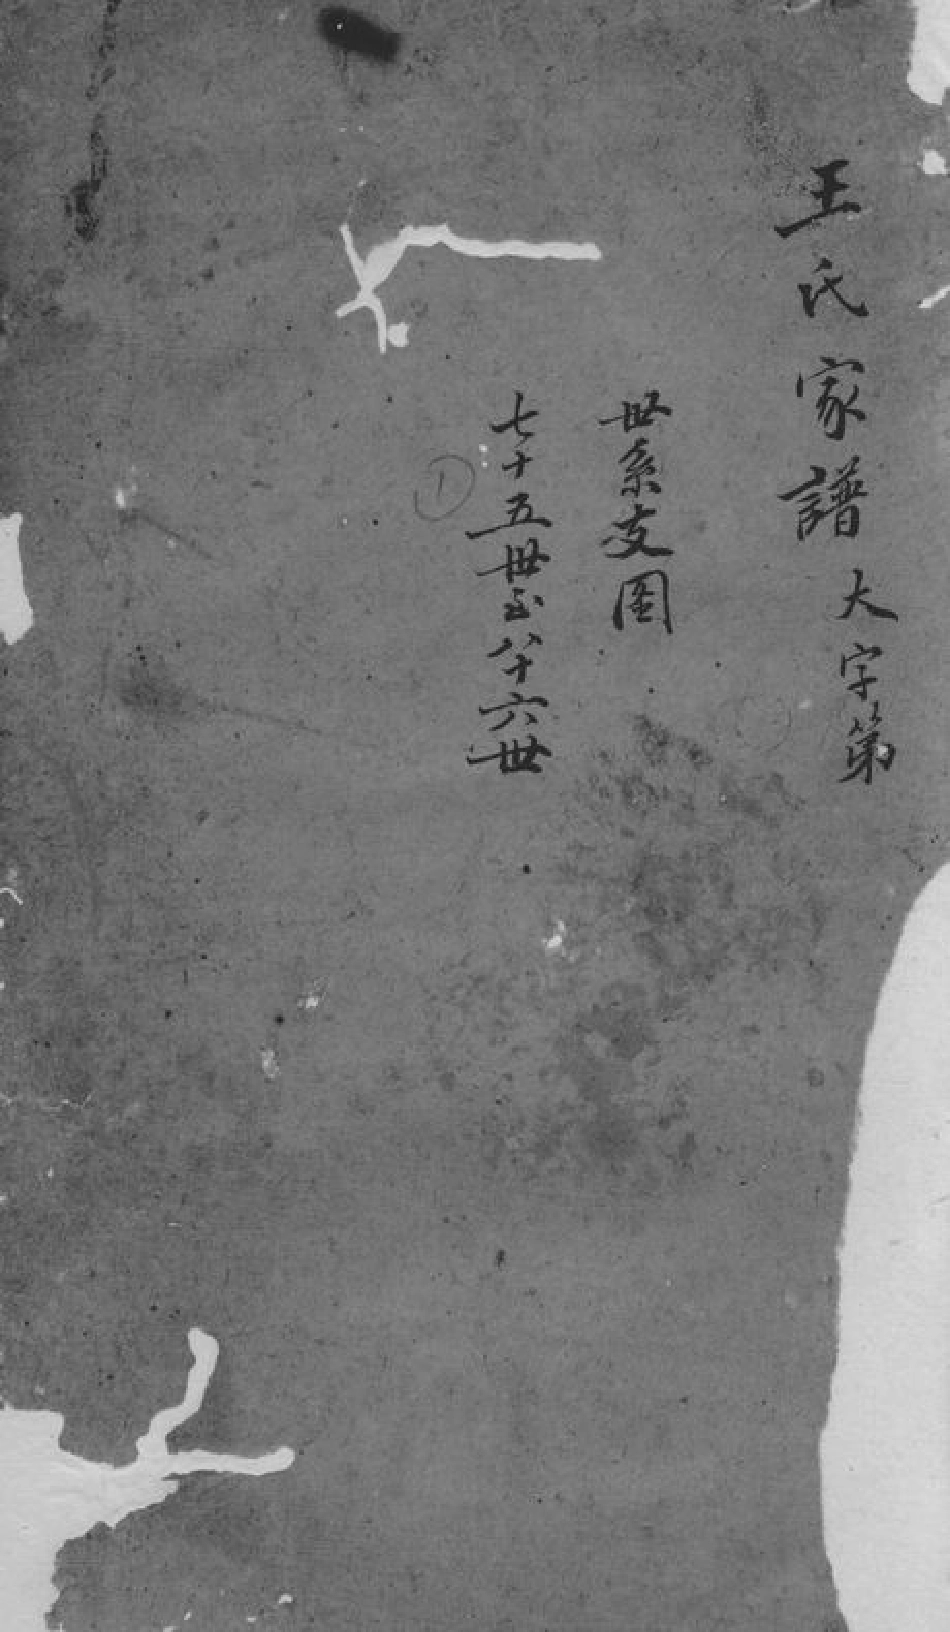 王氏家譜 大字第
世系支图
七十五世至八十六世
①